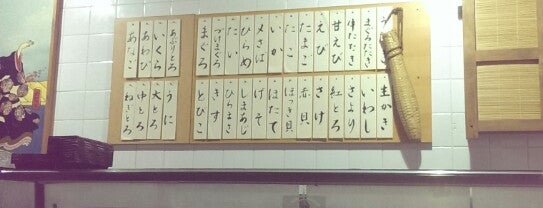 生たこ
まぐろたたき
牛たたき
甘えび
えび
たまご
たこ
いか
〆さば
ひらめ
たい
づけまぐろ
まぐろ
あぶりとろ
いくら
あわび
あなご
生かき
いわし
さより
紅とろ
さけ
赤貝
ほっき貝
ほたて
げそ
しまあじ
ひらまさ
きす
とびこ
うに
大とろ
中とろ
ねぎとろ